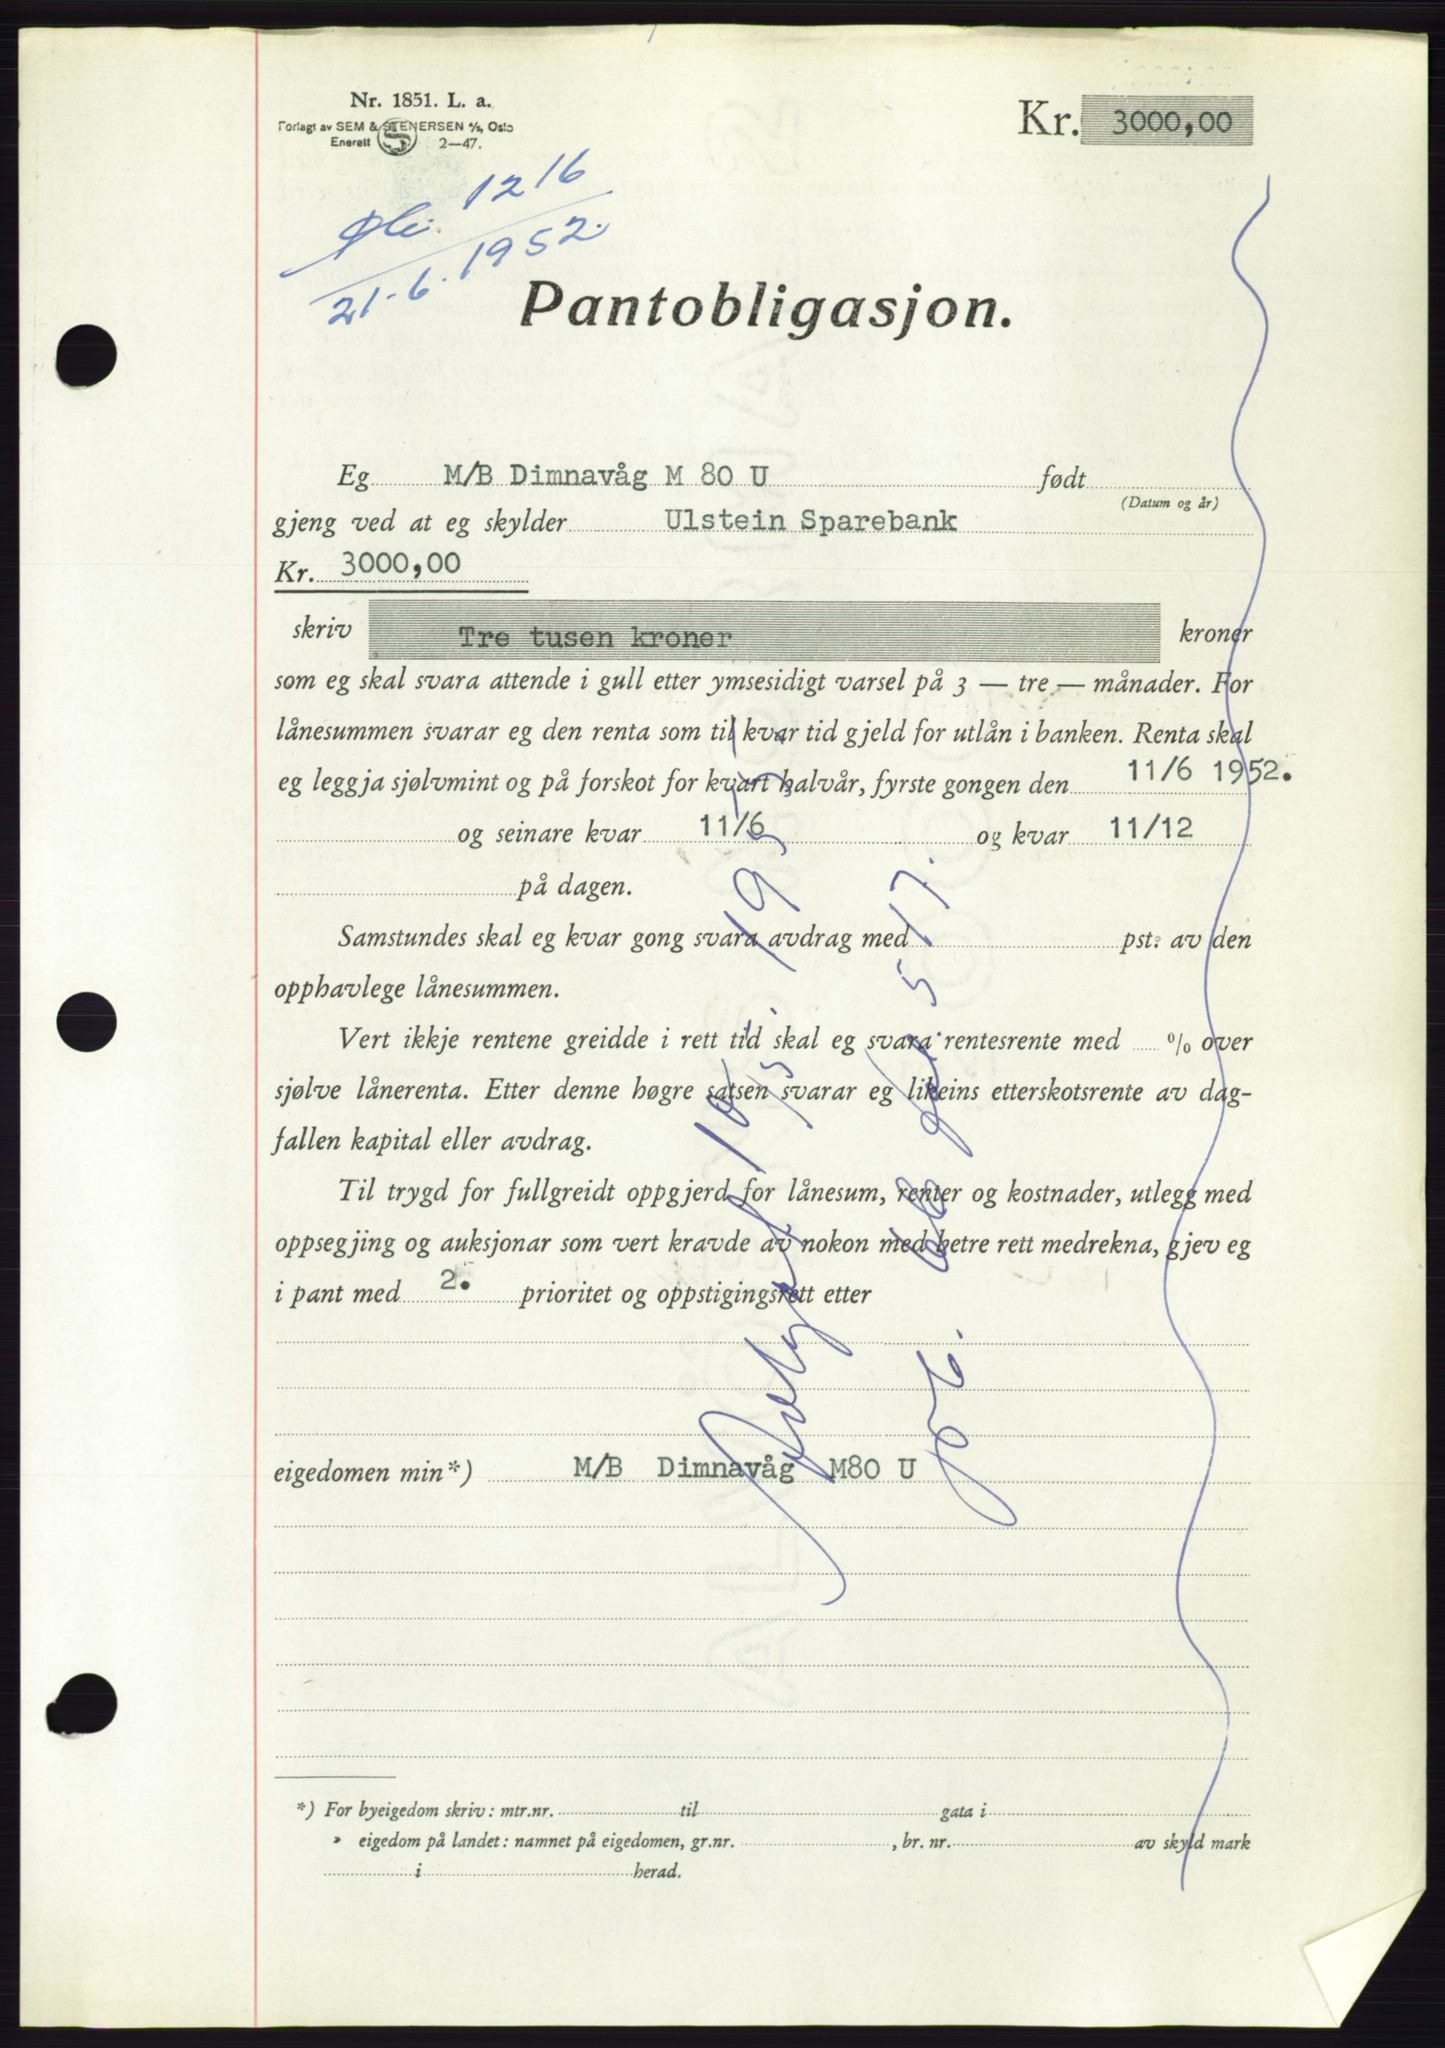 Nr. 1851. L. a.
Forlagt av SEM & STENERSEN A/S, Oslo
Enerett 2—47.
Kr. 3000,00
1216
21-6. 1952.
Pantobligasjon.
Eg M/B Dimnavåg M 80 U født
(Datum og år)
gjeng ved at eg skylder Ulstein Sparebank
Kr. 3000,00
skriv Tre tusen kroner kroner
som eg skal svara attende i gull etter ymsesidigt varsel på 3 — tre — månader. For
lånesummen svarar eg den renta som til kvar tid gjeld for utlån i banken. Renta skal
eg leggja sjølvmint og på forskot for kvart halvår, fyrste gongen den 11/6 1952.
og seinare kvar 11/6 og kvar 11/12
på dagen.
Samstundes skal eg kvar gong svara avdrag med pst. av den
opphavlege lånesummen.
Vert ikkje rentene greidde i rett tid skal eg svara rentesrente med % over
sjølve lånerenta. Etter denne høgre satsen svarar eg likeins etterskotsrente av dag-
fallen kapital eller avdrag.
Til trygd for fullgreidt oppgjerd for lånesum, renter og kostnader, utlegg med
oppsegjing og auksjonar som vert kravde av nokon med betre rett medrekna, gjev eg
i pant med 2. prioritet og oppstigingsrett etter
eigedomen min*) M/B Dimnavåg M80 U
*) For byeigedom skriv: mtr.nr. til gata i
» eigedom på landet: namnet på eigedomen, gr.nr. , br. nr. av skyld mark
i herad.